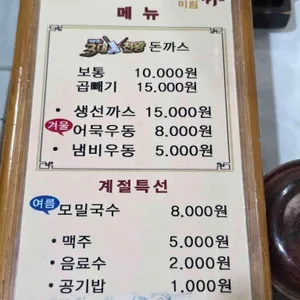 메뉴
미림
돈까스
보통 10.000원
곱빼기 15.000원
• 생선까스 15.000원
겨울
• 어묵우동 8.000원
• 냄비우동 5.000원
계절특선
여름
모밀국수 8,000원
• 맥주 5,000원
• 음료수 2,000원
• 공기밥 1,000원